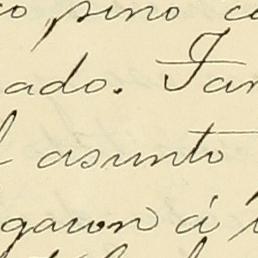 sino
ado. Tan
asunto
garon á